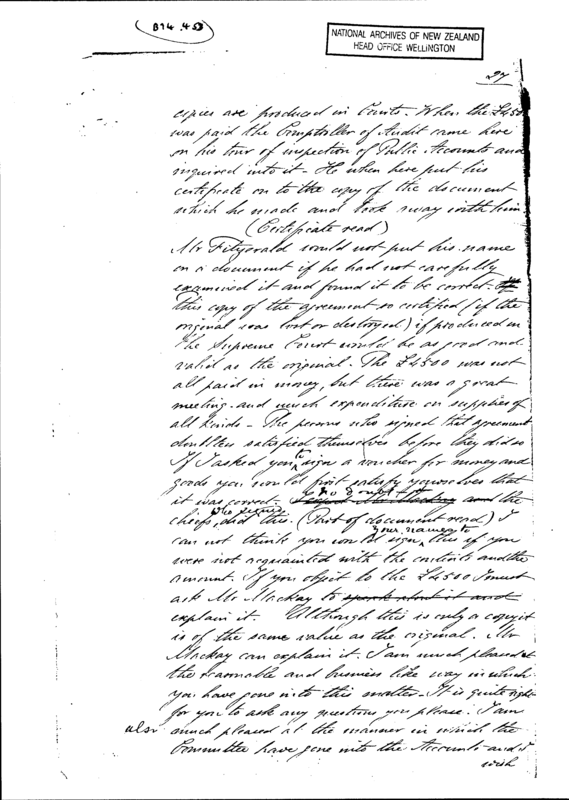 B14.453
NATIONAL ARCHIVES OF NEW ZEALAND
HEAD OFFICE WELLINGTON
27
copies are produced in Courts - When the £4500
was paid the Comptroller of Audit came here
on his tour of inspection of Public Accounts and
inquired into it - He when here put his
certificate on to the copy of the document
which he made and took away with him
(Certificate read)
Mr Fitzgerald would not put his name
on a document if he had not carefully
examined it and found it to be correct -
this copy of the agreement so certified (if the
original was lost or destroyed) if produced in
the Supreme Court would be as good and
valid as the original. The £4500 was not
all paid in money, but there was a great
meeting and much expenditure on supplies of
all kinds - The persons who signed that agreement
doubtless satisfied themselves before they did so
If I asked you to sign a voucher for money and
goods you would first satisfy yourselves that
it was correct. no doubt the
chiefs who signed did this. (Part of document read) I
can not think you would sign your names to this if you
were not acquainted with the contents and the
amount. If you object to the £4500 I must
ask Mr. Mackay to speak about it and
explain it. Although this is only a copy it
is of the same value as the original. Mr
Mackay can explain it. I am much pleased at
the reasonable and business like way in which
you have gone into this matter - It is quite right
for you to ask any questions you please. I am
also much pleased at the manner in which the
Committee have gone into the Accounts and I
wish